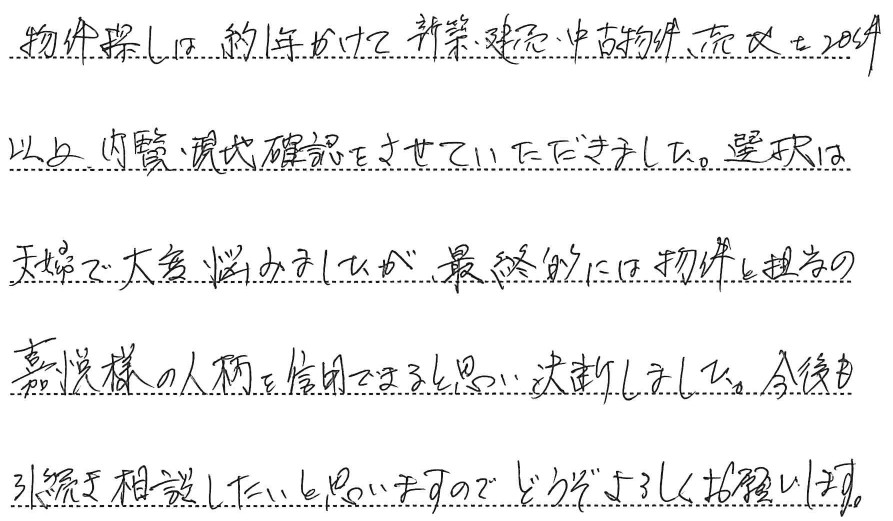 物件探しは約1年かけて新築・建売・中古物件、売地を20件
以上、内覧・現地確認をさせていただきました。選択は
夫婦で大変悩みましたが、最終的には物件と担当の
嘉悦様の人柄を信用できると思い決断しました。今後も
引続き相談したいと思いますのでどうぞよろしくお願いします。